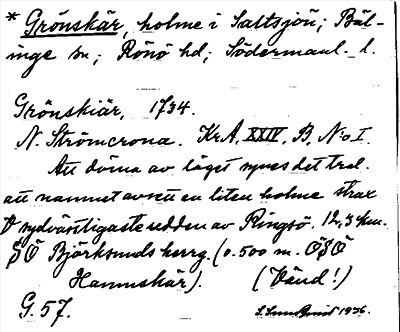 * Grönskär, holme i Saltsjön; Bäl-
inge sn; Rönö hd; Södermanl. l.
Grönskiär, 1734.
N. Strömcrona. KrA, XXIV, B, No I.
Att döma av läget synes det tvel.
att namnet avsett en liten holme strax
V sydvästligaste udden av Ringsö. 12,3 km.
SÖ Björksunds herrg. (0.500 m. OSÖ
Hamnskär). (Vänd!)
G. 57.
1936.